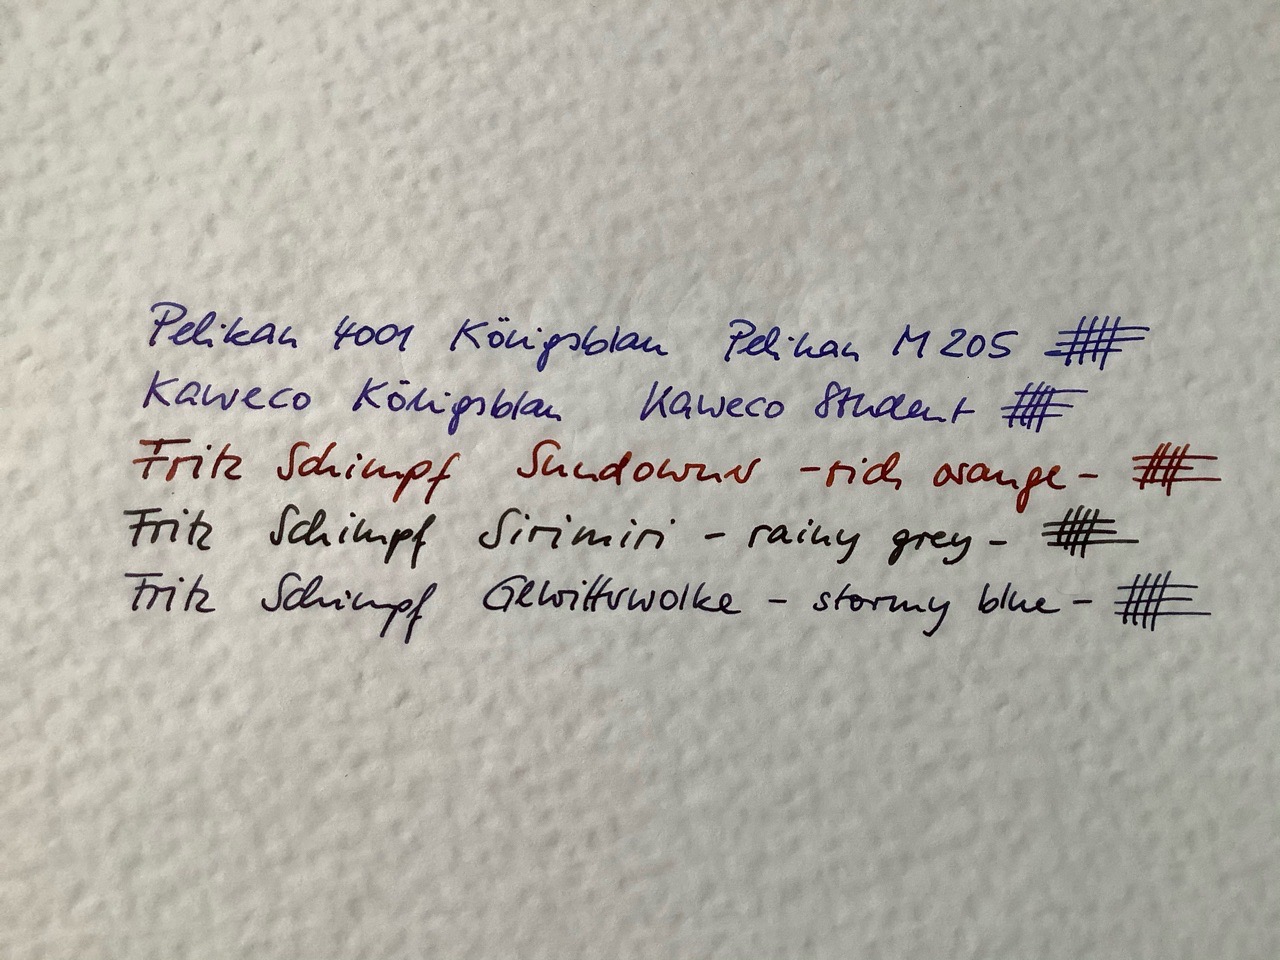 Pelikan 4001 Königsblau Pelikan M205
Kaweco Königsblau Kaweco Student
Fritz Schimpf Sundowner -rich orange-
Fritz Schimpf Sirimiri - rainy grey -
Fritz Schimpf Gewitterwolke - stormy blue -